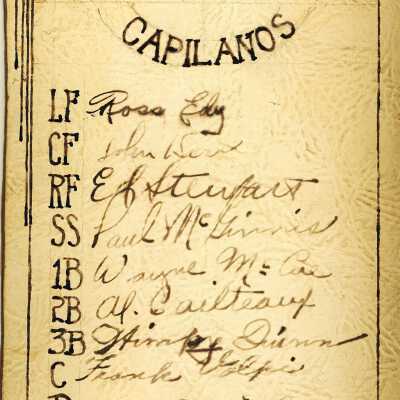 CAPILANOS
LF Ross Edy
CF John Kerr
RF Ed Stewart
SS Paul McGinnis
1B Wayne McCue
2B Al. Cailteaux
3B Himpy Dunn
C Frank Volpi